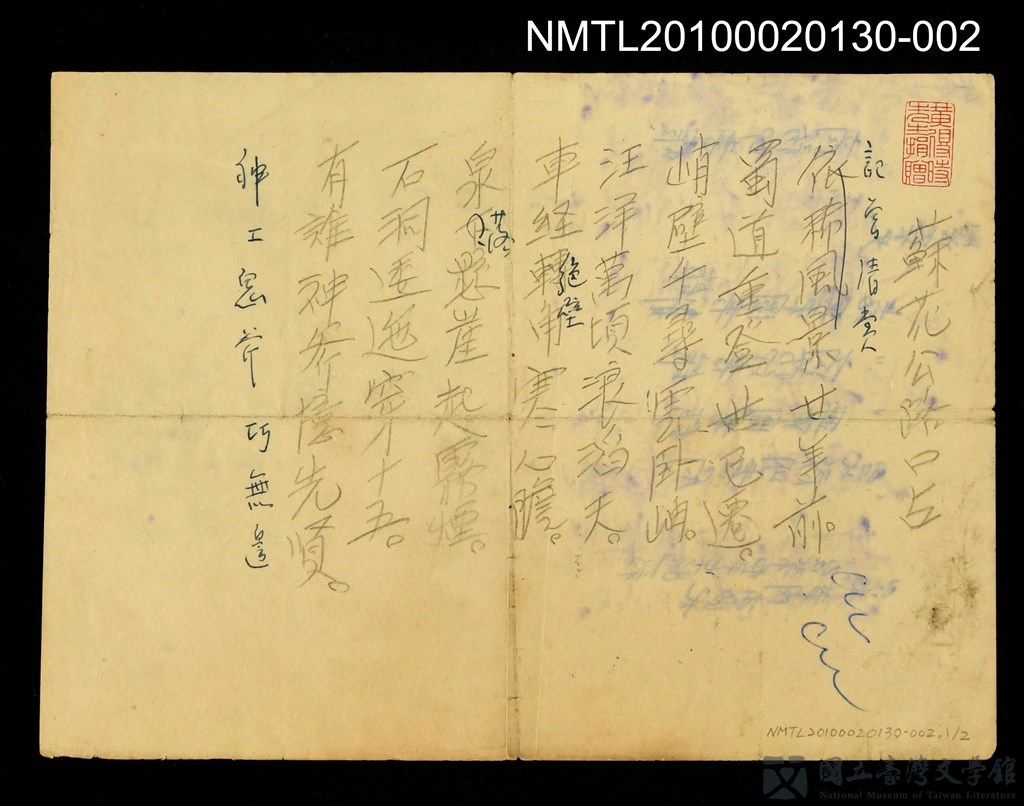 NMTL20100020130-002
黃得時先生捐贈
蘇花公路口占
記曾清賞
依稀風景廿年前。
蜀道重登世已遷。
峭壁千尋雲臥岫。
汪洋萬頃浪滔天。
車經轉角寒心膽。
絕壁
泉 懸崖起翠煙。
落
石洞逶迤穿十五。
有誰神斧勝先賢。
神工鬼斧巧無邊
NMTL20100020130-002.1/2
國立臺灣文學館
National Museum of Taiwan Literature